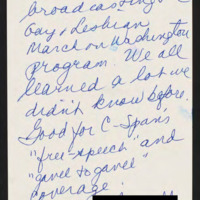 broadcasting
Gay & Lesbian
March on Washington
program. We all
learned a lot we
didn't know before.
Good for C-Span's
"free-speech" and
"gavel to gavel"
coverage.